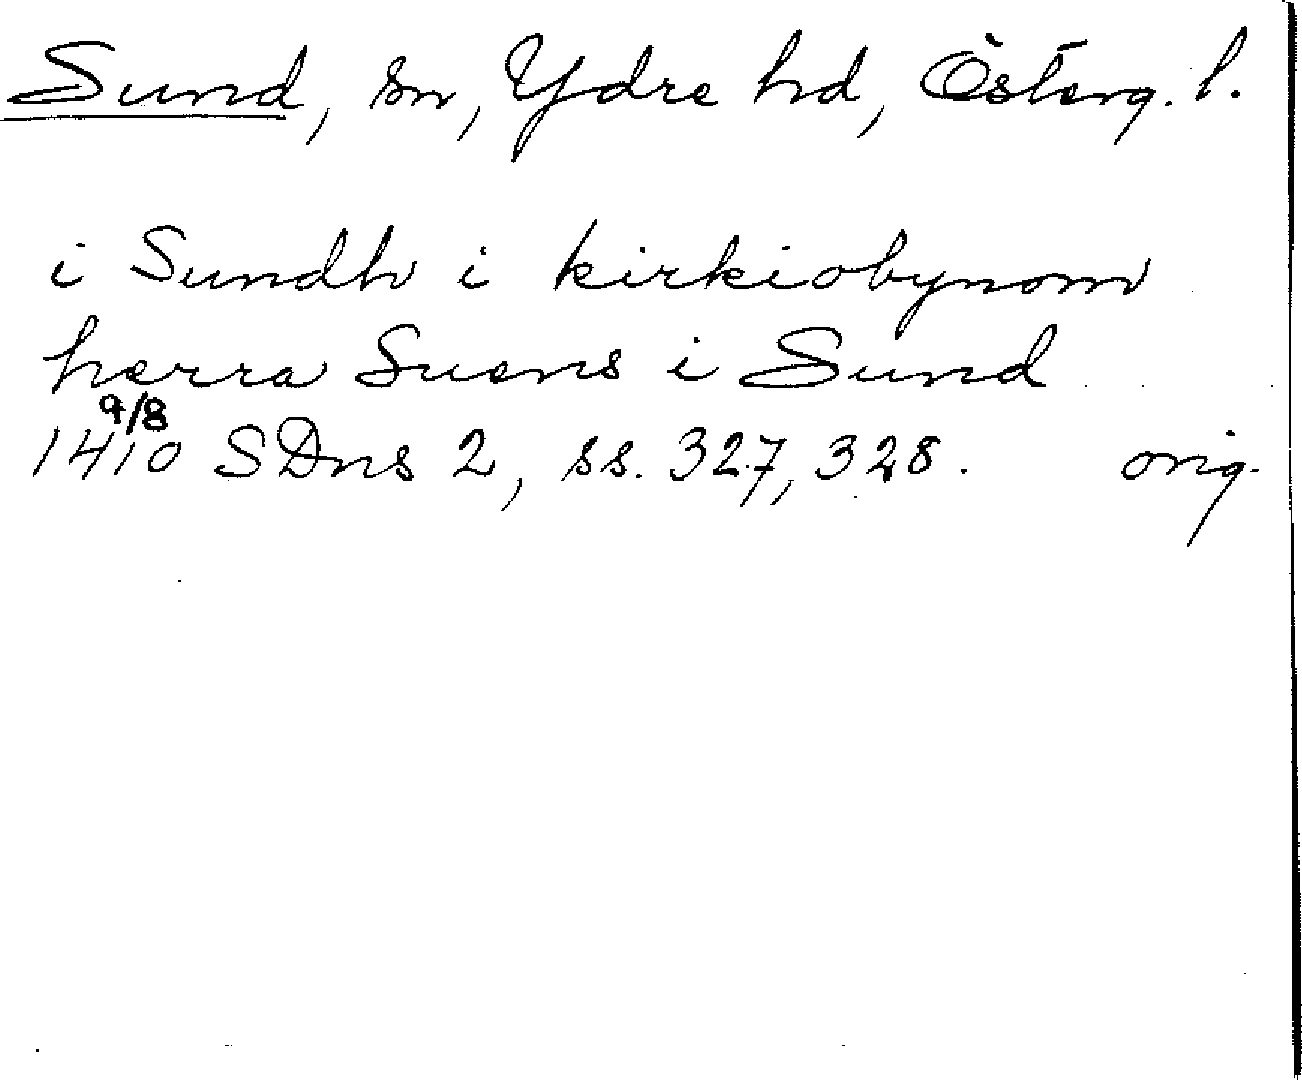 Sund, sn, Ydre hd, Österg. l.
i Sundh i kirkiobynom
herra Suens i Sund
9/8
1410 SDns 2, ss. 327, 328. orig.